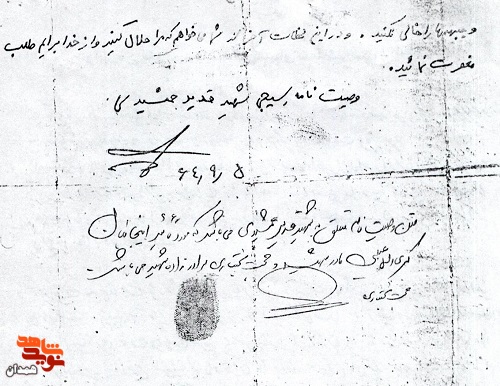 و جبهه‌ها را خالی نکنید. و در این لحظات آخر از شما می‌خواهم که مرا حلال کنید و از خدا برایم طلب
مغفرت نمائید.
وصیت نامه بسیجی شهید قدیر جمشیدی
۶۴/۹/۵
متن وصیت نامه متعلق به شهید قدیر جمشیدی می‌باشد که مورد تأئید اینجانبان
کبری مادر شهید و برادرزاده شهید می‌باشد.
نوید شاهد
همدان